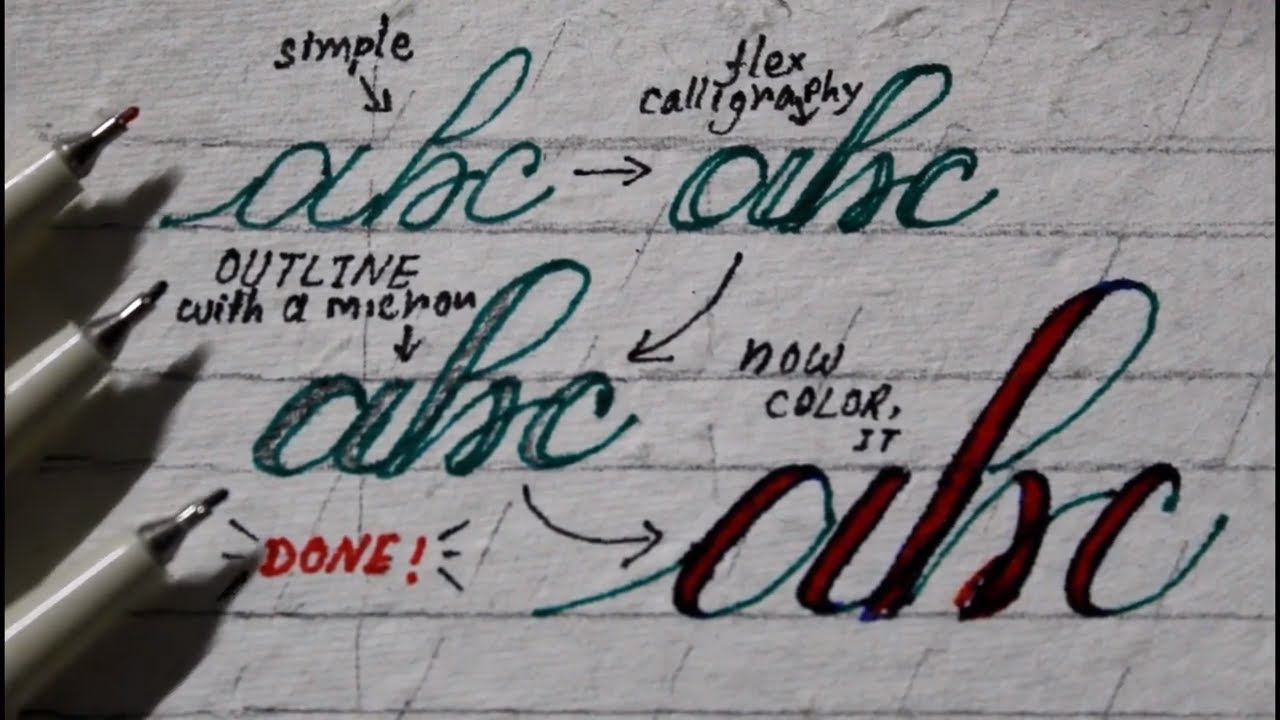 simple
abc
flex
calligraphy
abc
OUTLINE
with a micron
abc
now
COLOR,
IT
abc
DONE!